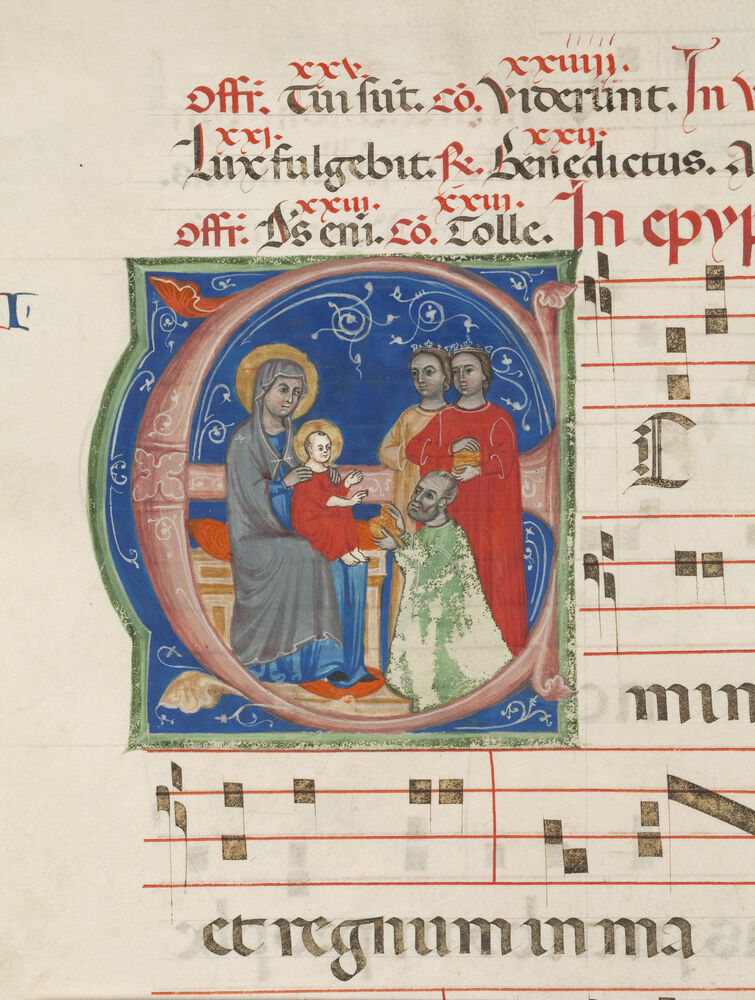 xxv. xxiiii.
Offr̄. Tui sūt. Cō. Viderunt. In
xxi. xxii.
Lux fulgebit. R̄. Benedictus. A
xxiii. xxiii.
Offr̄. Ds̄ eni. Cō. Tolle. In epyp
E C
min
et regnum in ma